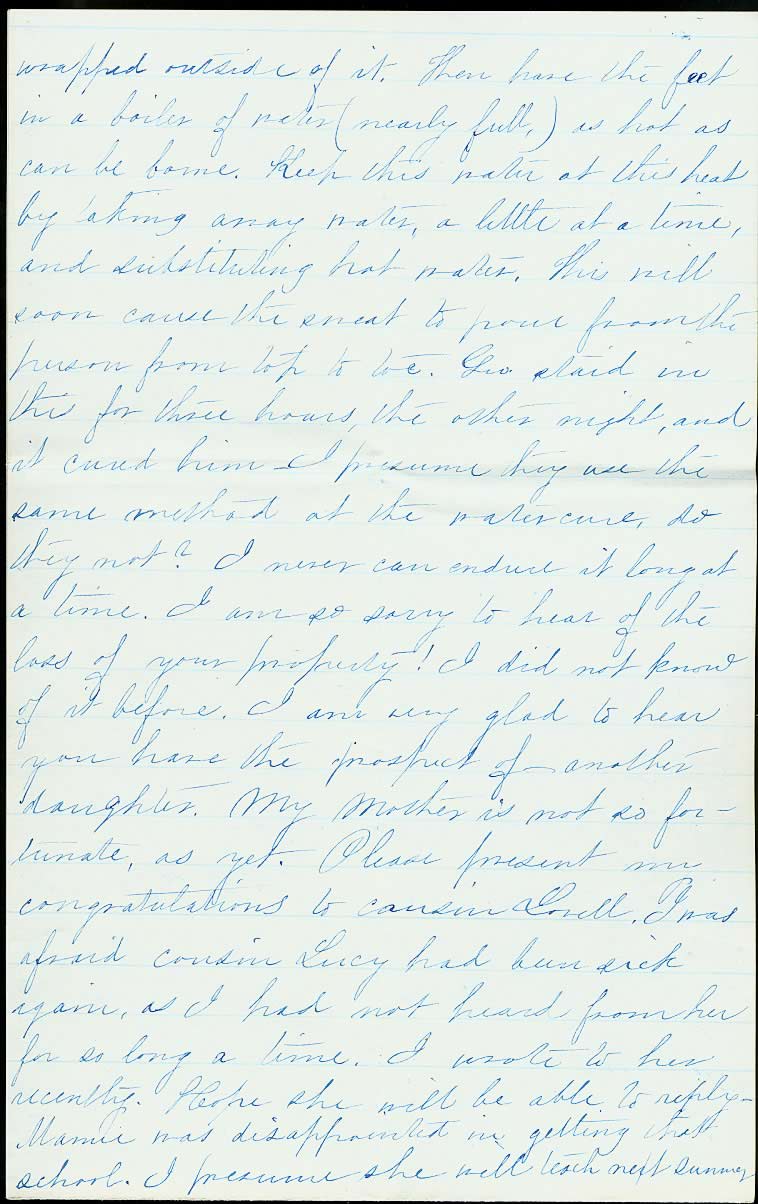 wrapped outside of it. Then have the feet
in a boiler of water (nearly full,) as hot as
can be borne. Keep this water at this heat
by taking away water, a little at a time,
and substituting hot water. This will
soon cause the sweat to pour from the
person from top to toe. Geo. staid in
this for three hours, the other night, and
it cured him - I presume they use the
same method at the watercure, do
they not? I never can endure it long at
a time. I am so sorry to hear of the
loss of your property! I did not know
of it before. I am very glad to hear
you have the prospect of another
daughter. My Mother is not so for-
tunate, as yet. Please present my
congratulations to cousin Lovell. I was
afraid cousin Lucy had been sick
again, as I had not heard from her
for so long a time. I wrote to her
recently. Hope she will be able to reply -
Mamie was disappointed in getting that
school. I presume she will teach next summer